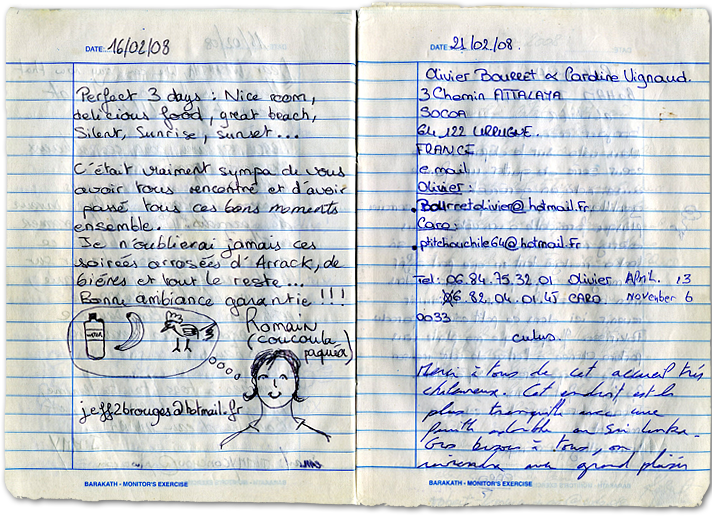 DATE: 16/02/08
Perfect 3 days : Nice room,
delicious food, great beach,
Silent, Sunrise, sunset...
C'était vraiment sympa de vous
avoir tous rencontré et d'avoir
passé tous ces bons moments
ensemble.
Je n'oublierai jamais ces
soirées arrosées d'Arrack, de
bières et tout le reste...
Bonne ambiance garantie !!!
Romain
(coucoula
paquéa)
jeff2brouges@hotmail.fr
BARAKATH - MONITOR'S EXERCISE
DATE: 21/02/08.
Olivier Bourret & Caroline Vignaud.
3 Chemin ATTALAYA
SOCOA
64 122 URRUGNE.
FRANCE
e.mail
Olivier :
Bourretolivier@hotmail.fr
Caro :
ptitchouchile64@hotmail.fr
Tel: 06.84.75.32.01 Olivier April. 13
06.82.04.01.45 CARO. November 6
0033
Merci à tous de cet accueil très
chaleureux. Cet endroit est le
plus tranquille avec une
famille adorable au Sri Lanka.
Gros bisous à tous, on
reviendra avec grand plaisir
BARAKATH - MONITOR'S EXERCISE